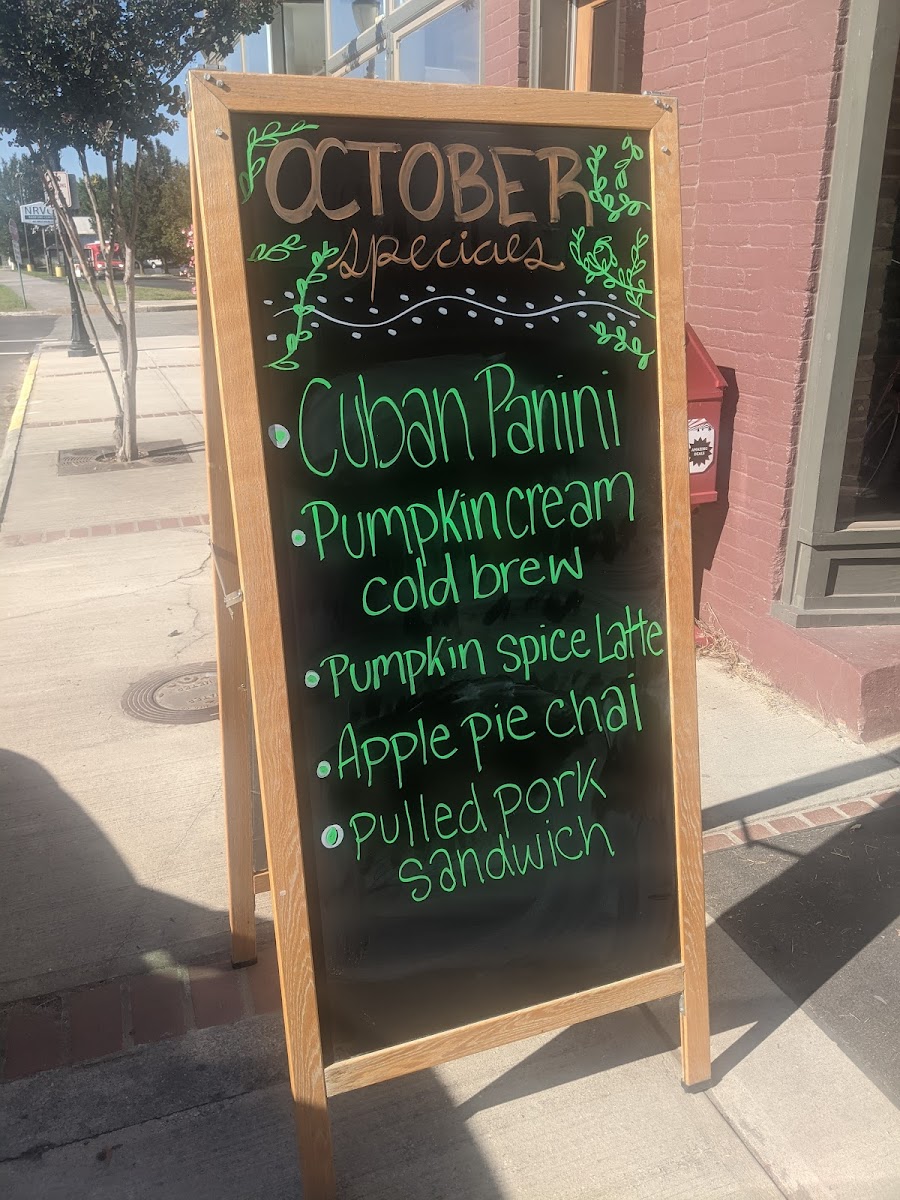 OCTOBER
specials
• Cuban Panini
• Pumpkin cream
cold brew
• Pumpkin spice Latte
• Apple pie chai
• Pulled pork
sandwich
NRVC